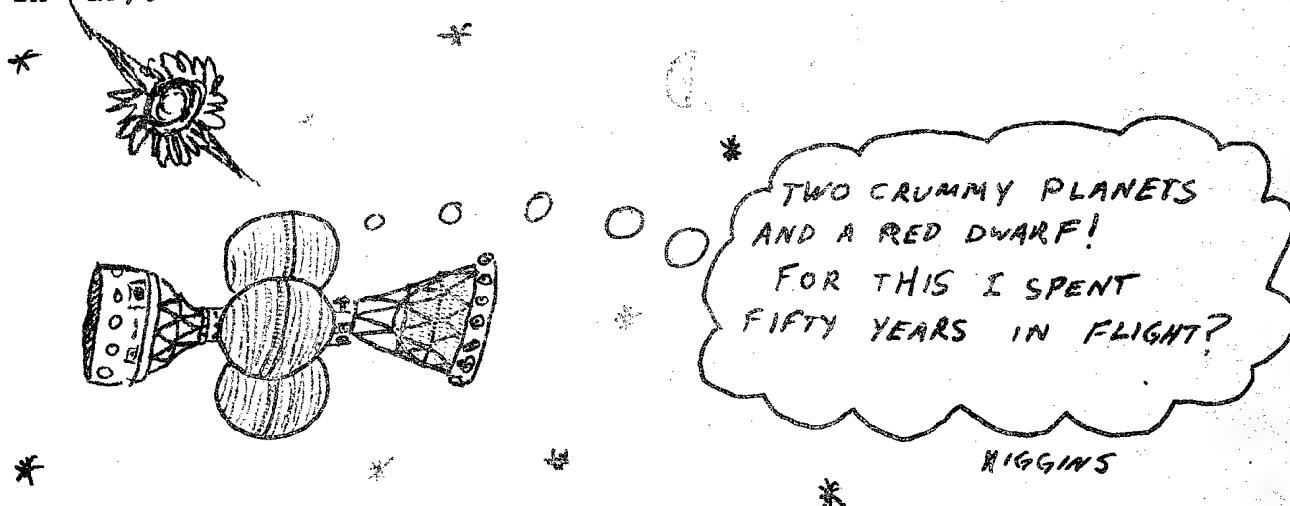 TWO CRUMMY PLANETS
AND A RED DWARF!
FOR THIS I SPENT
FIFTY YEARS IN FLIGHT?
HIGGINS